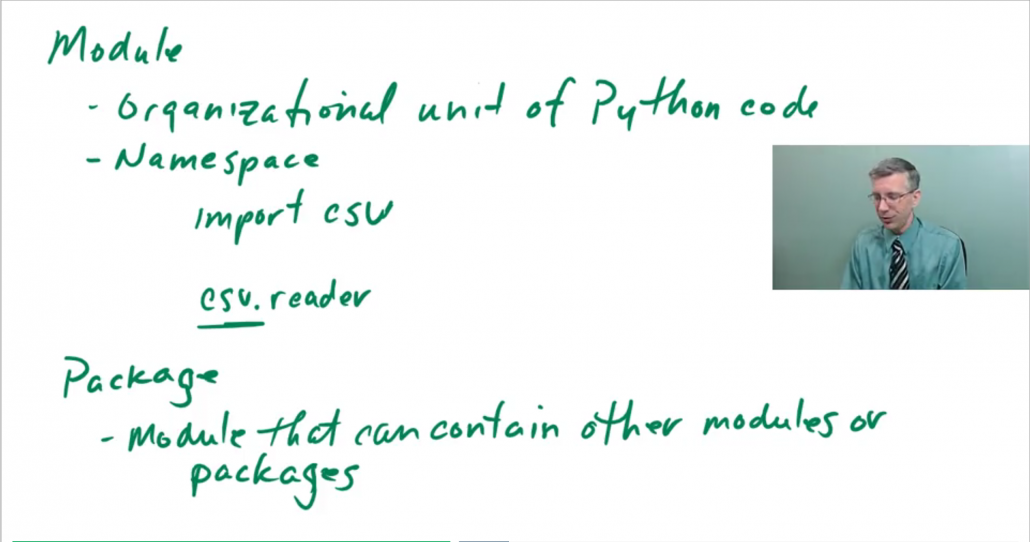 Module
- Organizational unit of Python code
- Namespace
import csv
csv.reader
Package
- Module that can contain other modules or
packages